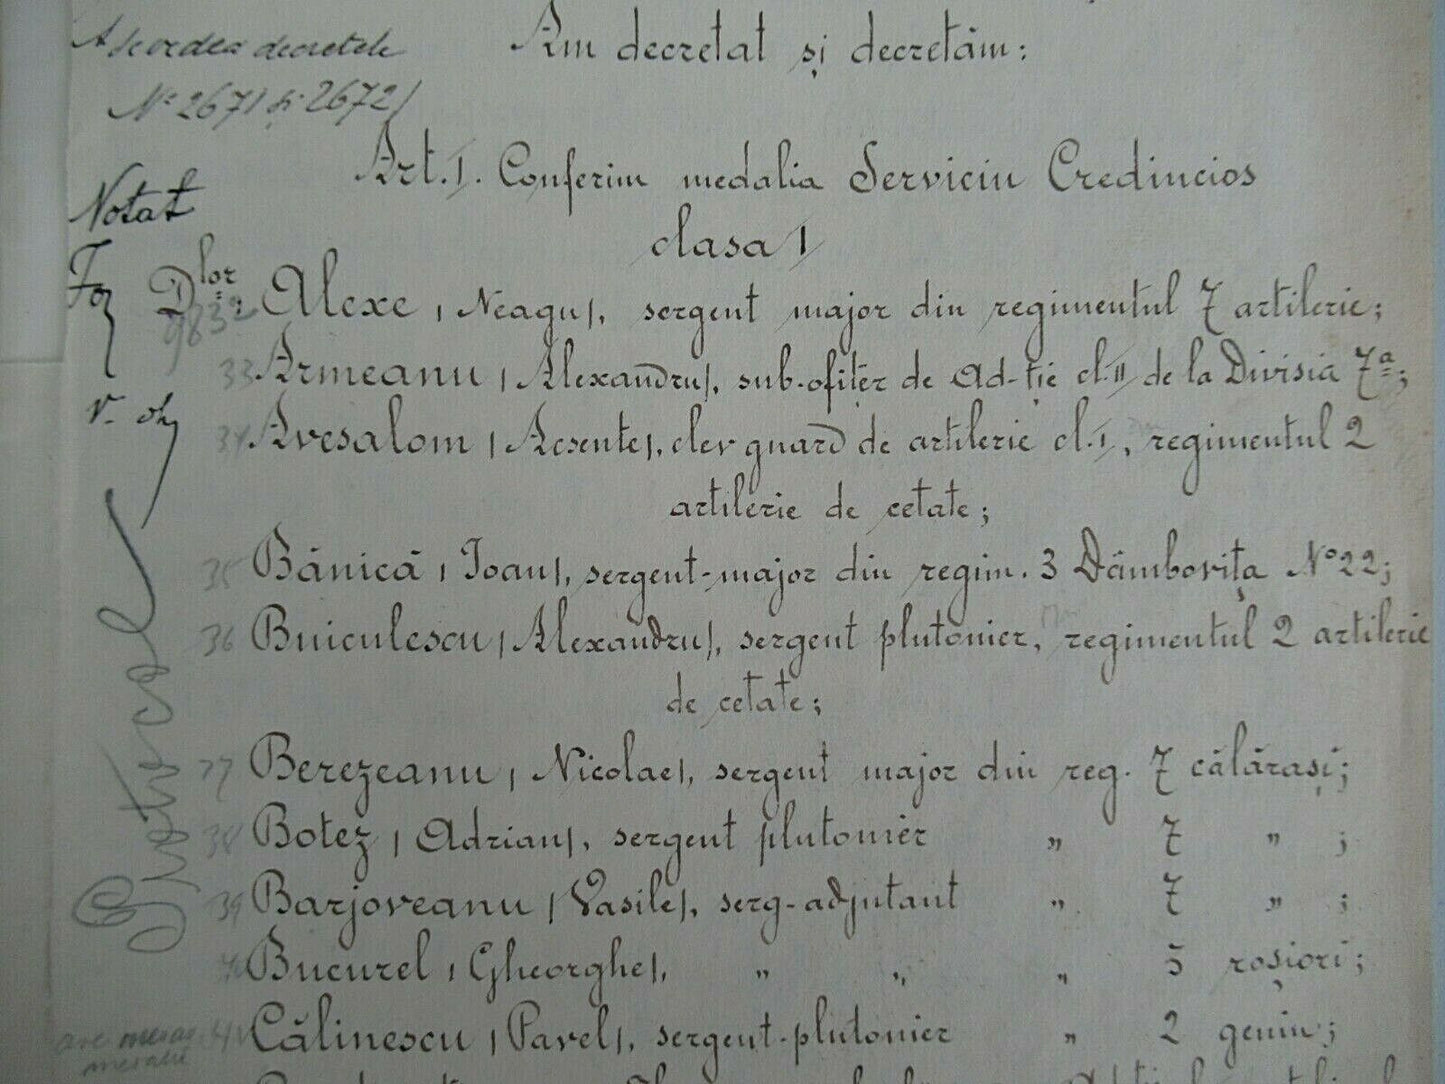 decretele
Am decretat și decretăm:
Nº 2671 și 2672/
Art. I. Conferim medalia Serviciu Credincios
Notat
clasa I
Dlor Alexe /Neagu/, sergent major din regimentul 7 artilerie;
33 Armeanu /Alexandru/, sub-ofițer de Ad-ție cl. II de la Divisia 7ª;
34 Avesalom /Acsente/, elev guard de artilerie cl. I, regimentul 2
artilerie de cetate;
35 Bănică /Ioan/, sergent-major din regim. 3 Dâmbovița Nº 22;
36 Buiculescu /Alexandru/, sergent plutonier, regimentul 2 artilerie
de cetate;
37 Berezeanu /Nicolae/, sergent major din reg. 7 călărași;
38 Botez /Adrian/, sergent plutonier " 7 " ;
39 Barjoveanu /Vasile/, serg-adjutant " 7 " ;
Bucurel /Gheorghe/, " " " 5 roșiori;
41 Călinescu /Pavel/, sergent-plutonier " 2 geniu;